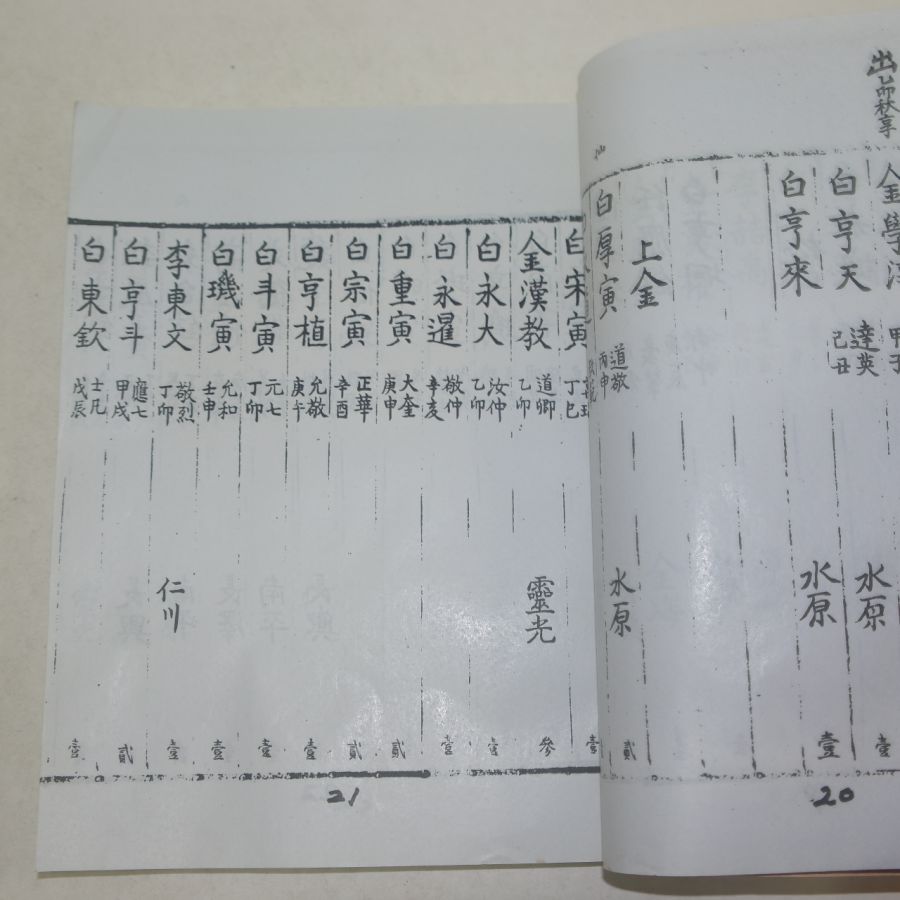 出 乙卯秋享
甲子
白亨天 達英 己丑 水原 壹
白亨來 水原 壹
上金
白厚寅 道敬 丙申 水原 貳
20
白宋寅 丁巳 壹
金漢教 道卿 乙卯 靈光 參
白永大 汝仲 乙卯 壹
白永暹 敬仲 辛亥 壹
白重寅 大奎 庚申 貳
白宗寅 正華 辛酉 貳
白亨植 允敬 庚午 壹
白斗寅 元七 丁卯 壹
白璣寅 允和 壬申 壹
李東文 敬烈 丁卯 仁川 壹
白亨斗 應七 甲戌 貳
白東欽 士凡 戊辰 壹
21